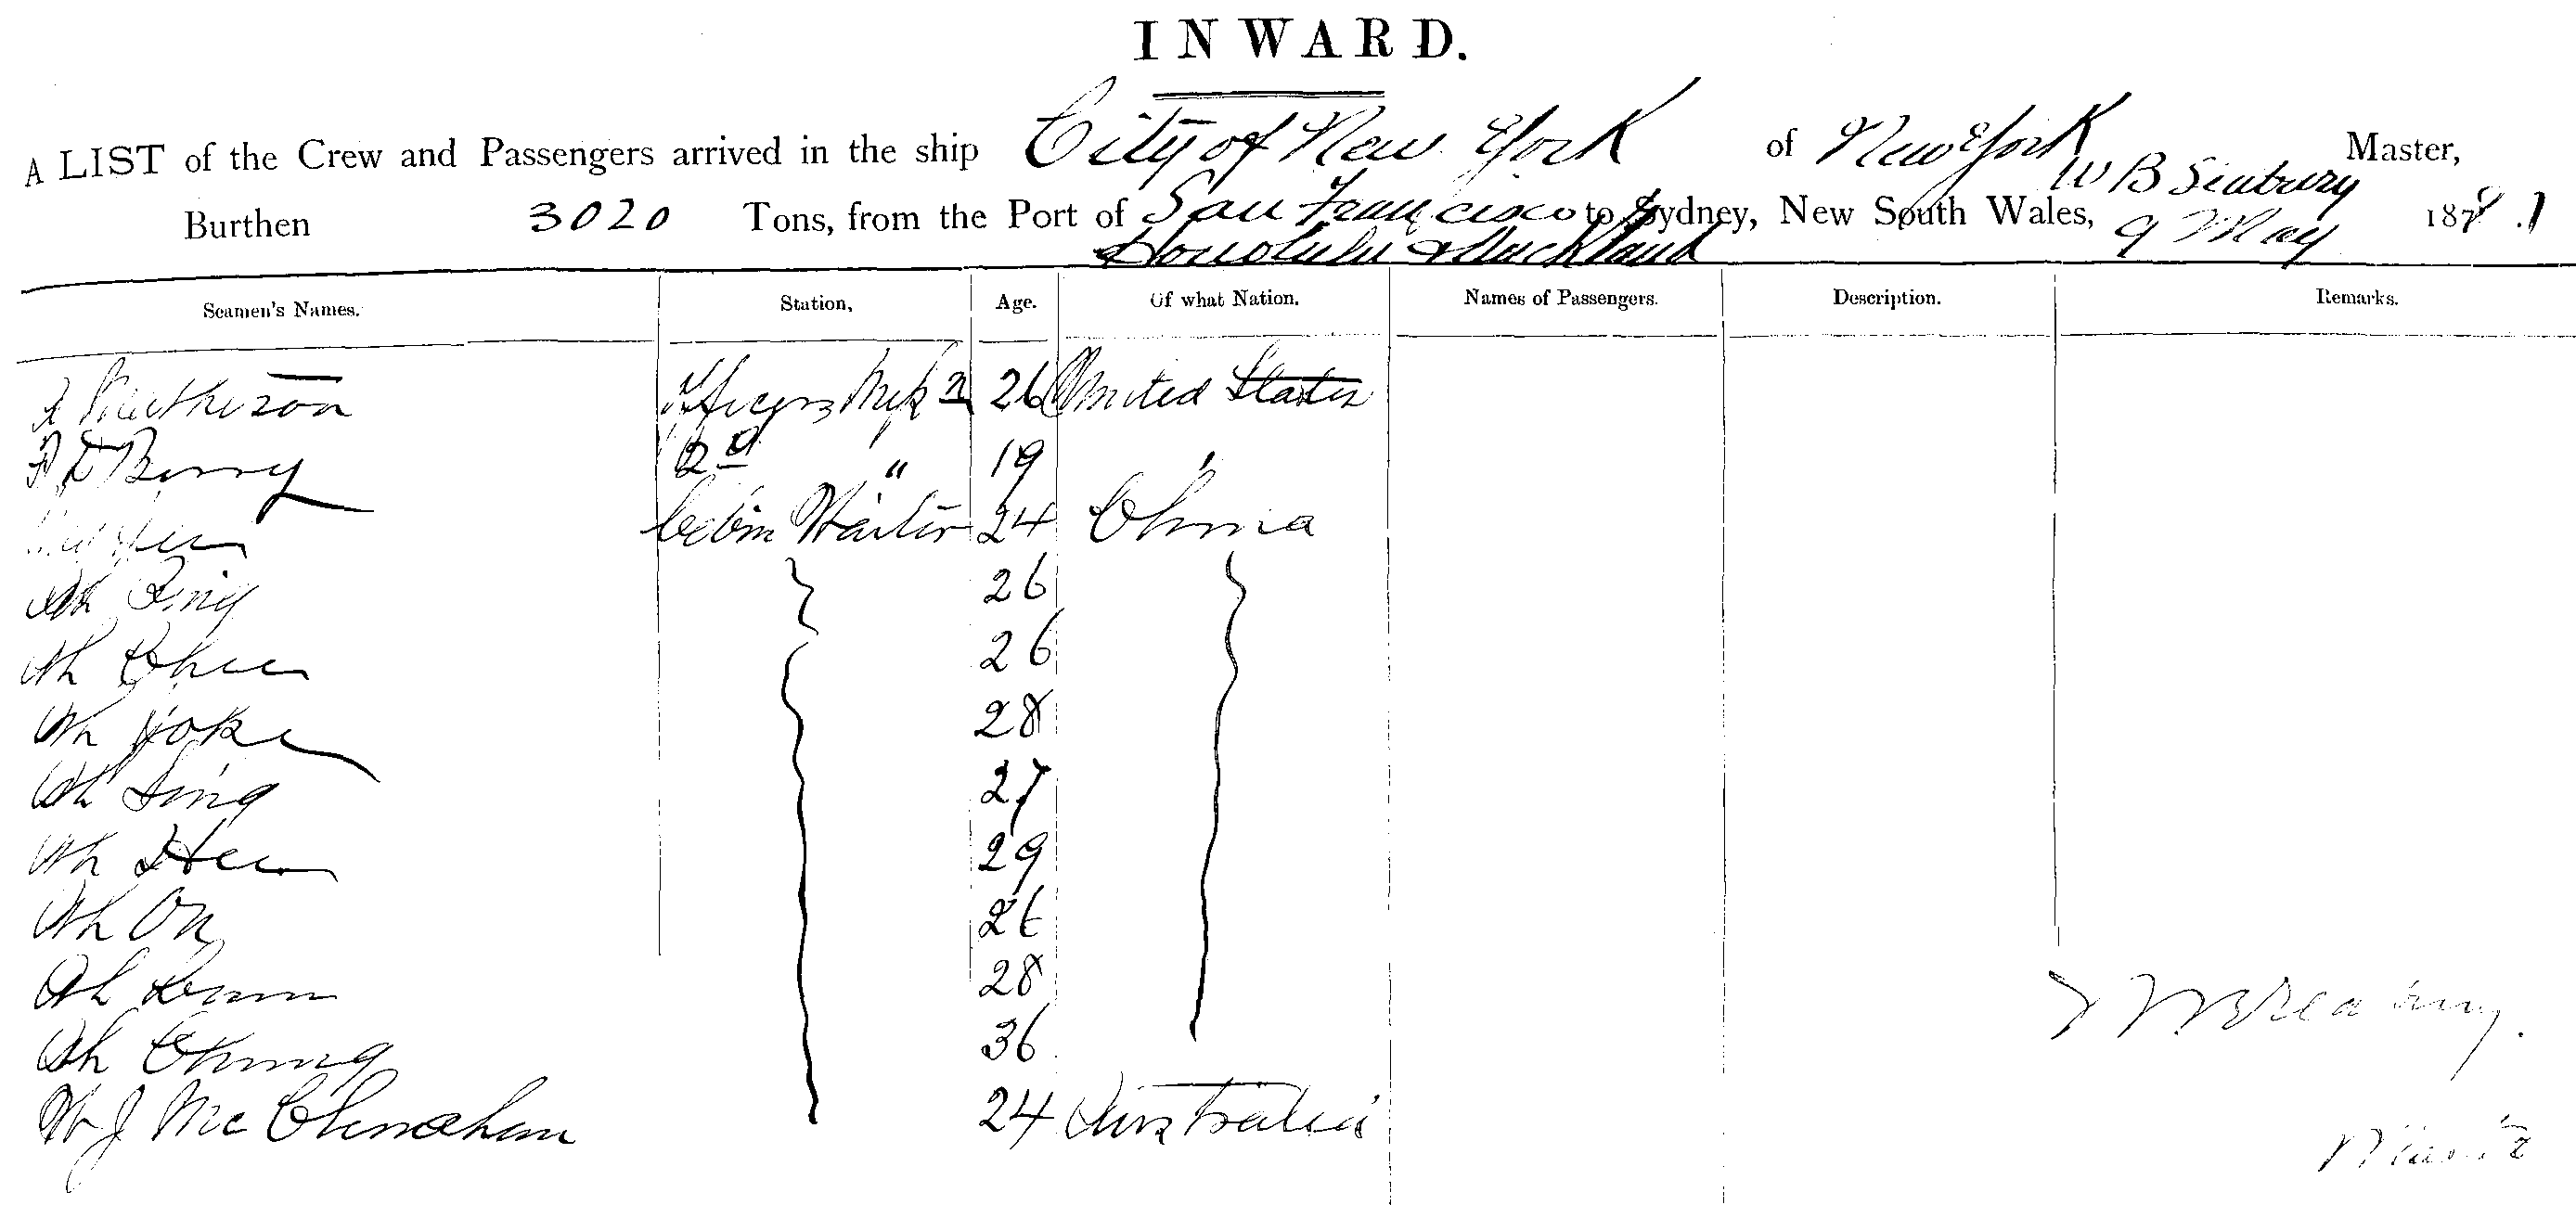 INWARD.
A LIST of the Crew and Passengers arrived in the ship City of New York of New York W B Seabury Master,
Burthen 3020 Tons, from the Port of San Francisco to Sydney, New South Wales, 9 May 1881
Honolulu & Auckland
Seamen's Names. Station, Age. Of what Nation. Names of Passengers. Description. Remarks.
Matheson Officers 26 United States
Berry 2d " 19 "
Cabin Waiter 24 China
Ah King 26
Ah Chee 26
Ah 28
Ah Sing 27
Ah Hee 29
Ah On 26
Ah 28
Ah Chung 36
W J McClenahan 24 Australia
W B Seabury.